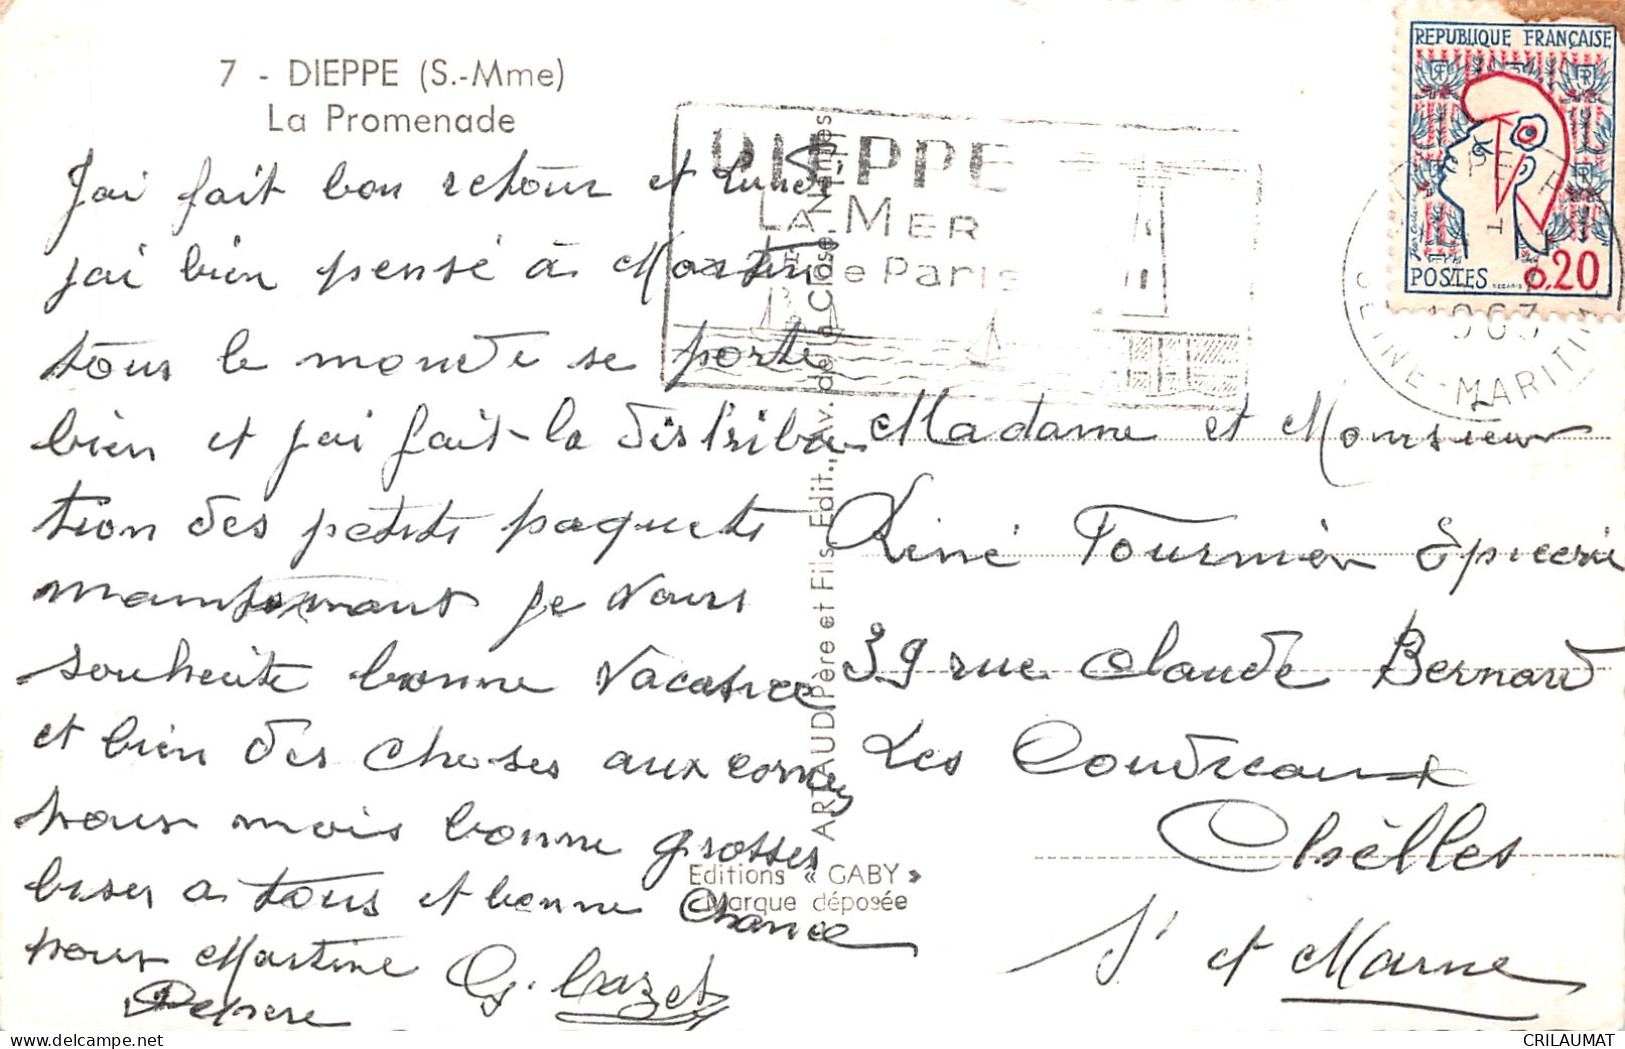 7 - DIEPPE (S.-Mme)
La Promenade
J'ai fait bon retour et Lundi
j'ai bien pensé à Martine
tous le monde se porte
bien et j'ai fait la distribu
tion des petits paquets
maintenant je vous
souhaite bonne vacance
et bien des choses aux
pour mois bonne grosses
biser a tous et bonne chance
pour Martine G. Cazet
DIEPPE
LA MER
de Paris
ARTAUD Père et Fils, Edit., Av. de la Close, Nantes
Editions « GABY »
Marque déposée
REPUBLIQUE FRANÇAISE
POSTES 0,20
1963
SEINE-MARITIME
Madame et Monsieur
Réné Fournier Epicerie
39 rue Claude Bernard
Les Coudreaux
Chèlles
S' et Marne
CRILAUMAT